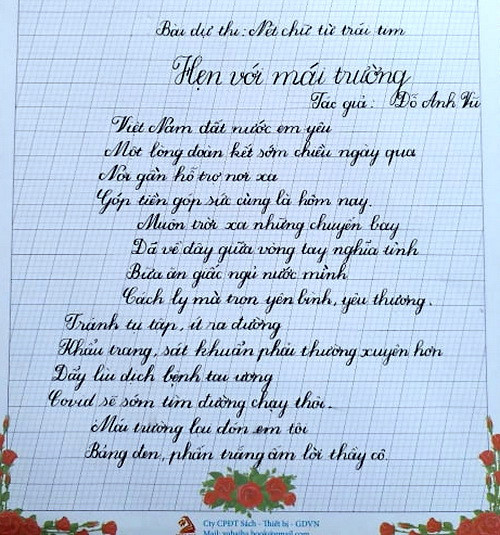 Bài dự thi: Nét chữ từ trái tim
Hẹn với mái trường
Tác giả: Đỗ Anh Vũ
Việt Nam đất nước em yêu
Một lòng đoàn kết sớm chiều ngày qua
Nơi gần hỗ trợ nơi xa
Góp tiền góp sức cùng là hôm nay.
Muôn trời xa những chuyến bay
Đã về đây giữa vòng tay nghĩa tình
Bữa ăn giấc ngủ nước mình
Cách ly mà trọn yên bình, yêu thương.
Tránh tụ tập, ít ra đường
Khẩu trang, sát khuẩn phải thường xuyên hơn
Đẩy lùi dịch bệnh tai ương
Covid sẽ sớm tìm đường chạy thôi.
Mái trường lại đón em tôi
Bảng đen, phấn trắng ấm lời thầy cô
Cty CPĐT Sách - Thiết bị - GDVN